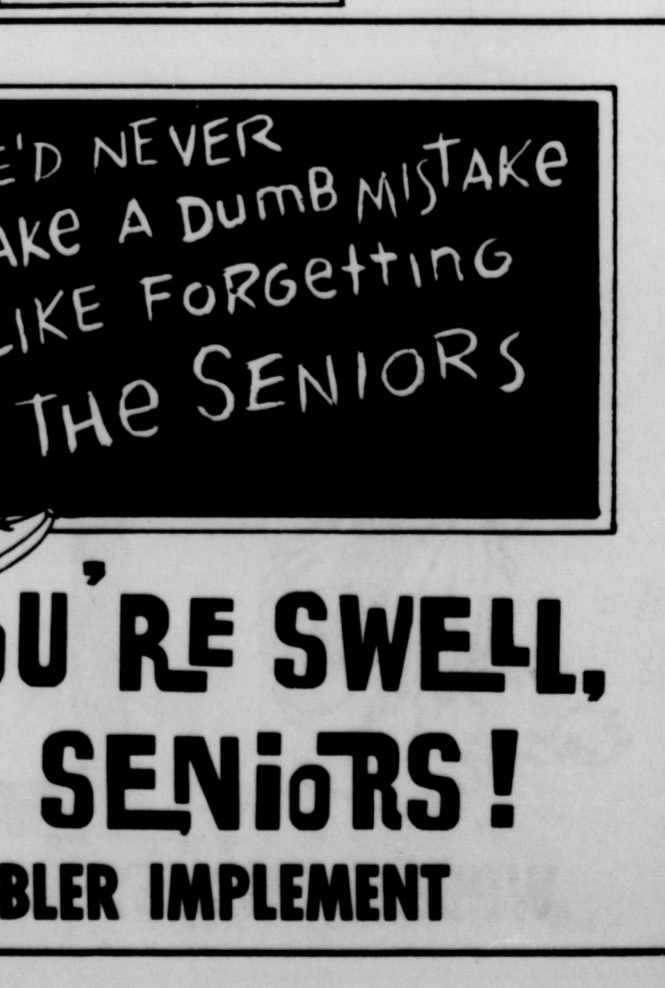 E'D NEVER
AKe A DumB MISTAKe
LIKE FORGettinG
THe SENIORS
OU'RE SWELL,
SENioRS!
BLER IMPLEMENT